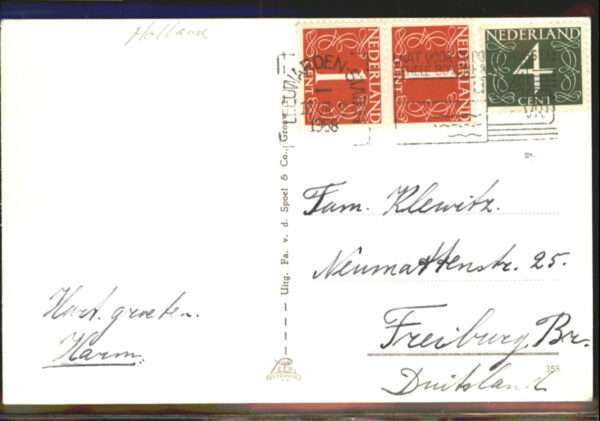 Holland
NEDERLAND
1
CENT
NEDERLAND
1
CENT
NEDERLAND
4
CENT
LEEUWARDEN
1958
Uitg. Fa. v. d. Spoel & Co., Gron.
Fam. Klewitz.
Neumattenstr. 25.
Freiburg, Br.
Duitsland
Hart. groeten.
Harm.
358